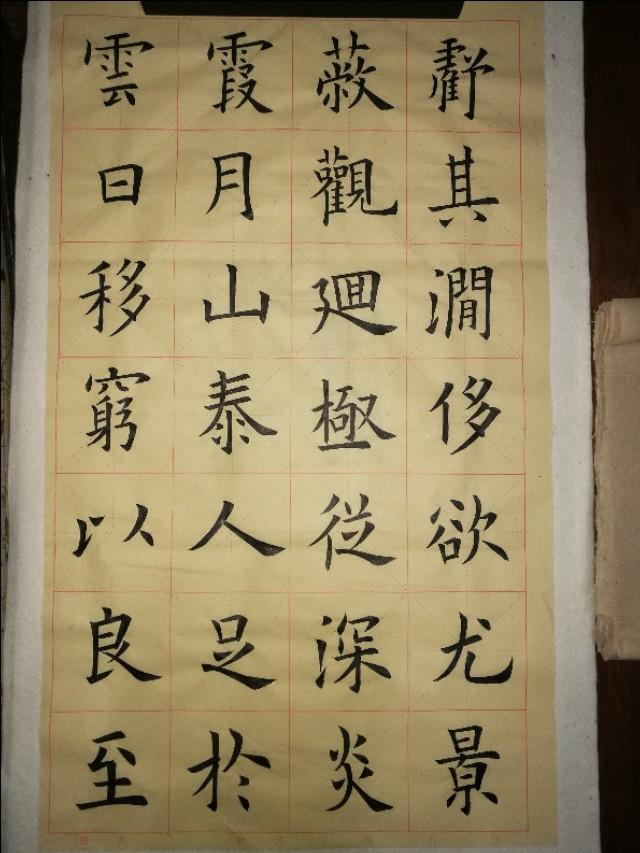 雲霞蔽虧
日月觀其
移山廻澗
窮泰極侈
以人從欲
良足深尤
至於炎景